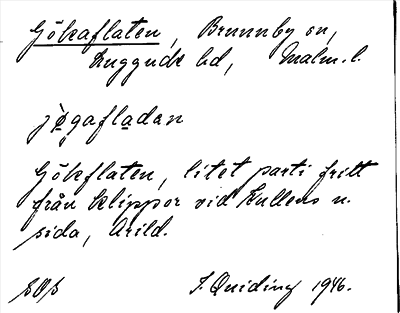 Gökaflaten, Brunnby sn,
Luggude hd, Malm. l.
jö̀gafladan
Gökflaten, litet parti fritt
från klippor vid Kullens n.
sida, Arild.
1946.